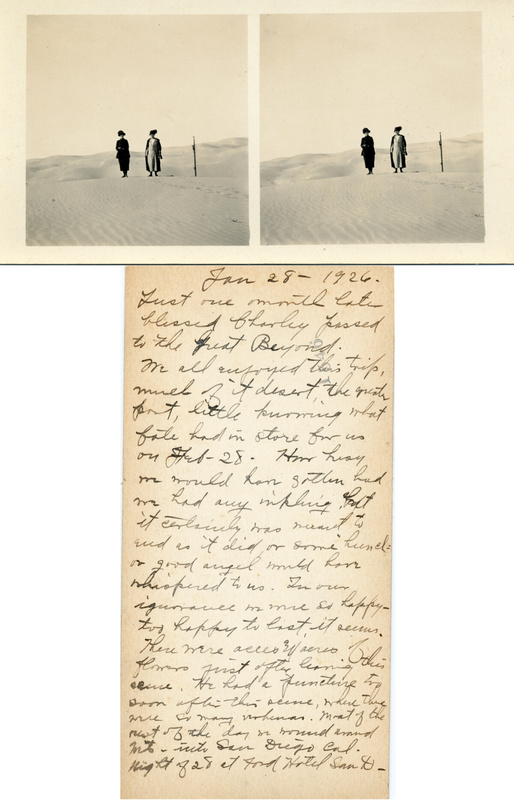 Jan 28 - 1926.
Just one month later
blessed Charley passed
to the Great Beyond.
We all enjoyed this trip,
much of it desert, the greater
part, little knowing what
fate had in store for us
on Feb - 28. How busy
we would have gotten had
we had any inkling, but
it certainly was meant to
end as it did, or some hunch=
or good angel would have
whispered to us. In our
ignorance we were so happy-
too happy to last, it seems.
There were acres & acres of
flowers just after leaving this
scene. He had a puncture too
soon after this scene, where there
were so many verbenas. Most of the
rest of the day we wound around
Mts - into San Diego Cal.
Night of 28 at Ford Hotel San D-